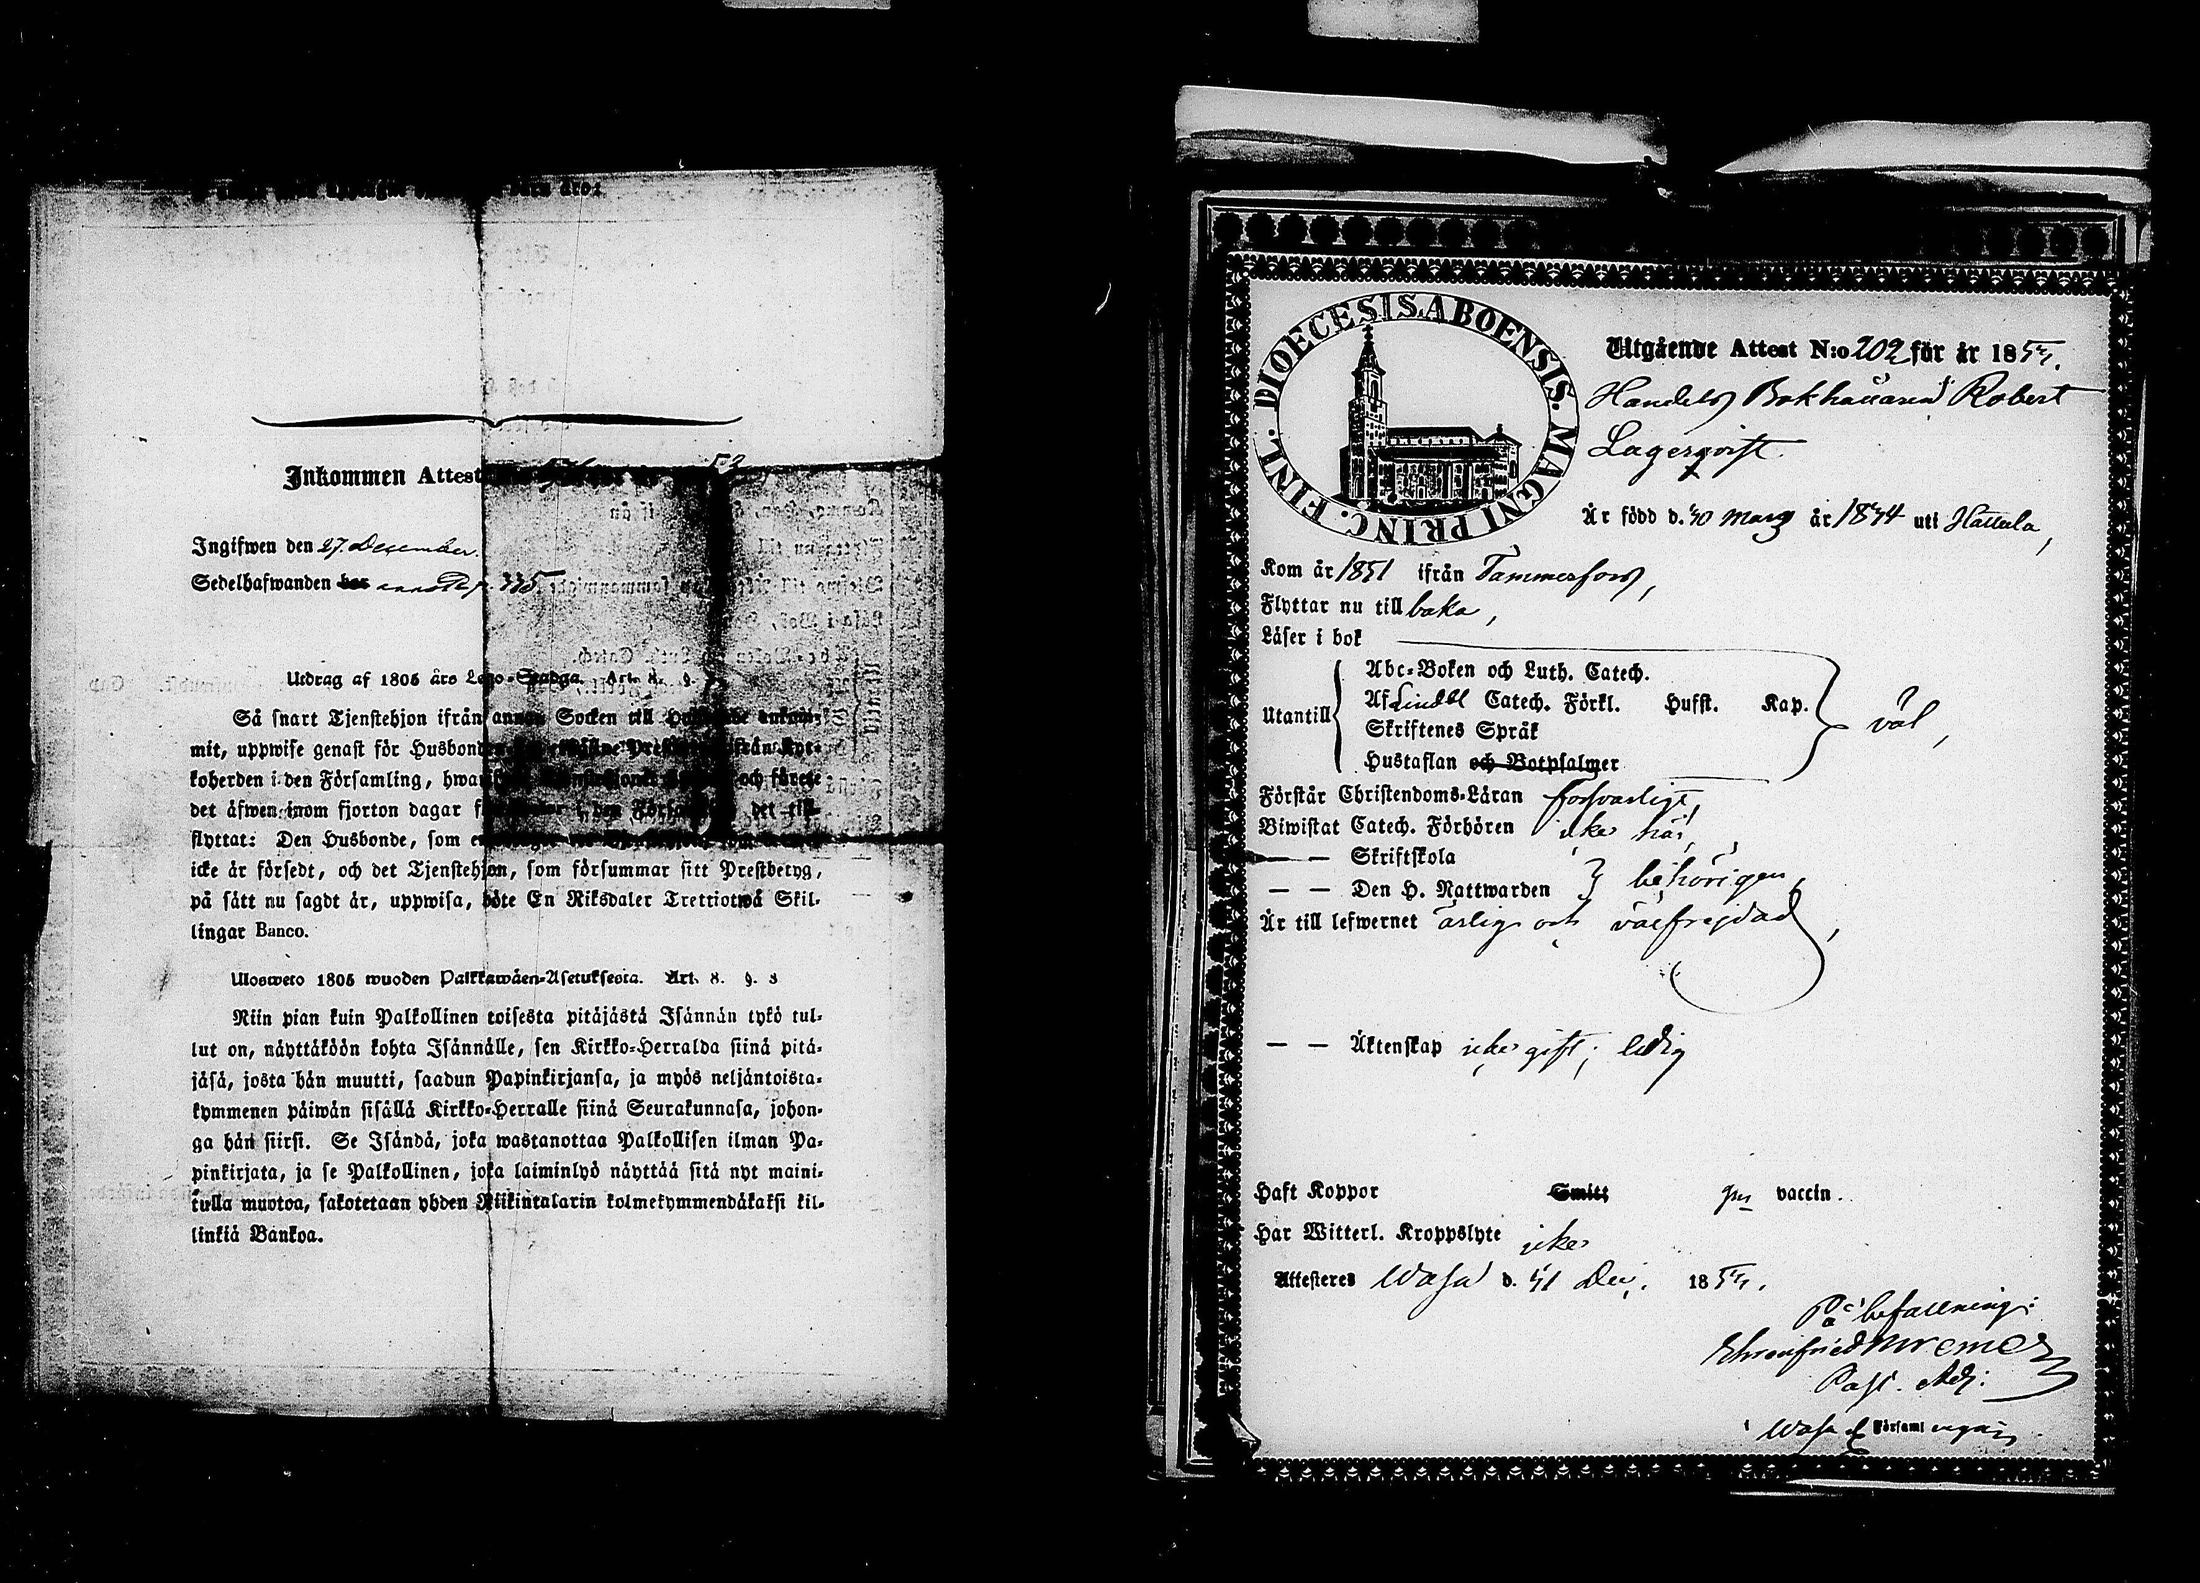 Inkommen Attest
Ingifwen den 27. December.
Sedelhafwanden har p. 335
Utdrag af 1805 års Lego-Stadga. Art. 8. §.
Så snart Tjenstehjon ifrån annan Socken till
mit, uppwise genast för Husbonden
koherden i den Församling, och förete
det äfwen inom fjorton dagar det till-
flyttat: Den Husbonde, som
icke är försedt, och det Tjenstehjon, som försummar sitt Prestbetyg,
på sätt nu sagdt är, uppwisa, böte En Riksdaler Trettiotwå Skil-
lingar Banco.
Ulosweto 1805 wuoden Palkkawäen-Asetuksesta. Art. 8. §. 3
Niin pian kuin Palkollinen toisesta pitäjästä Isännän tykö tul-
lut on, näyttäköön kohta Isännälle, sen Kirkko-Herralda siinä pitä-
jäsä, josta hän muutti, saadun Papinkirjansa, ja myös neljäntoista-
kymmenen päiwän sisällä Kirkko-Herralle siinä Seurakunnasa, johon-
ga hän siirsi. Se Isändä, joka wastanottaa Palkollisen ilman Pa-
pinkirjata, ja se Palkollinen, joka laiminlyö näyttää sitä nyt maini-
tulla muotoa, sakotetaan yhden Riikintalarin kolmekymmendäkaksi kil-
linkiä Bankoa.
DIOECESIS ABOENSIS. MAGNI PRINC. FINL.
Utgående Attest N:o 202 för år 185
Handels Bokhållaren Robert
Lagerqvist
Är född d. 30 Mars år 1834 uti Hattula,
Kom år 1851 ifrån Tammerfors,
Flyttar nu till baka,
Läser i bok
Utantill
Abc-Boken och Luth. Catech.
Af Lindbl Catech. Förkl. Hufst. Kap.
Skriftenes Språk
Hustaflan och Botpsalmer
väl,
Förstår Christendoms-Läran försvarligt,
Biwistat Catech. Förhören icke här,
— — Skriftskola
— — Den H. Nattwarden } behörigen,
Är till lefwernet ärlig och välfrejdad,
— — Äktenskap icke gift; ledig
Haft Koppor Smitt gm vaccin.
Har Witterl. Kroppslyte icke
Attesteres Wasa d. 31 Dec. 185
På befallning:
Ehrenfried
Past. Adj:
i Wasa Församl ingar